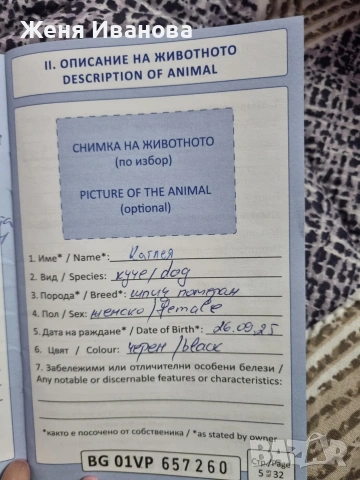 Женя Иванова
II. ОПИСАНИЕ НА ЖИВОТНОТО
DESCRIPTION OF ANIMAL
СНИМКА НА ЖИВОТНОТО
(по избор)
PICTURE OF THE ANIMAL
(optional)
1. Име* / Name*: Каглея
2. Вид / Species: куче/dog
3. Порода* / Breed*: шпиц померан
4. Пол / Sex: женско/female
5. Дата на раждане* / Date of Birth*: 26.09.25
6. Цвят / Colour: черен/black
7. Забележими или отличителни особени белези /
Any notable or discernable features or characteristics:
*както е посочено от собственика / *as stated by owner
BG 01VP 657260
Стр./Page
5 32
BAZAR